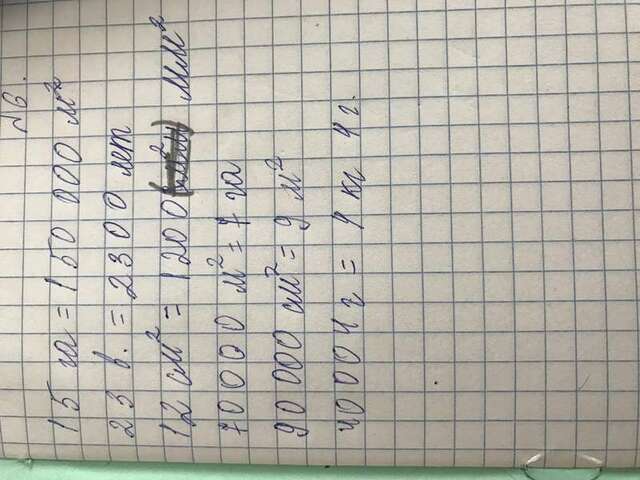 №6.
15 га = 150 000 м²
23 в. = 2300 лет
12 см² = 1200 мм²
70000 м² = 7 га
90000 см² = 9 м²
40004 г = 4 кг 4 г.